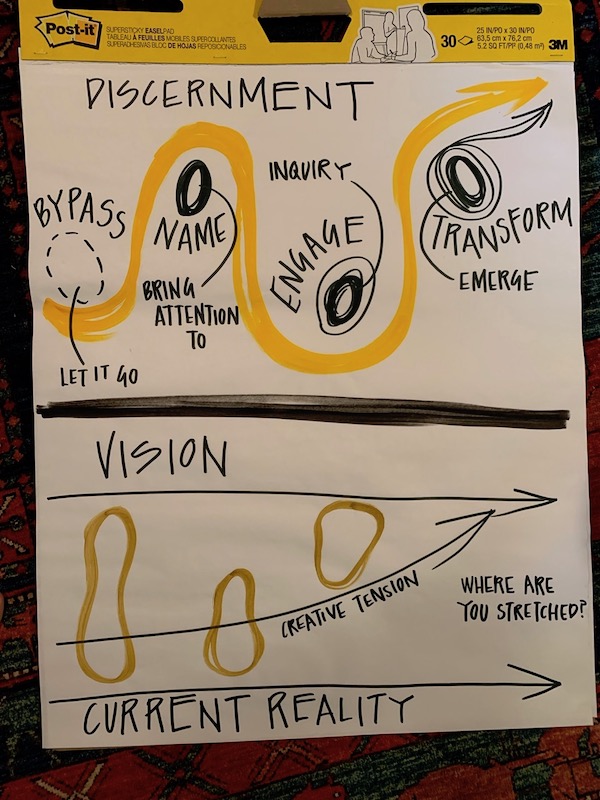 Post-it
SUPERSTICKY EASELPAD
TABLEAU À FEUILLES MOBILES SUPER COLLANTES
SUPERADHESIVAS BLOC DE HOJAS REPOSICIONABLES
30
25 IN/PO x 30 IN/PO
63,5 cm x 76,2 cm
5.2 SQ FT/PP (0,48 m²)
3M
DISCERNMENT
BYPASS
LET IT GO
NAME
BRING
ATTENTION
TO
INQUIRY
ENGAGE
TRANSFORM
EMERGE
VISION
CREATIVE TENSION
WHERE ARE
YOU STRETCHED?
CURRENT REALITY